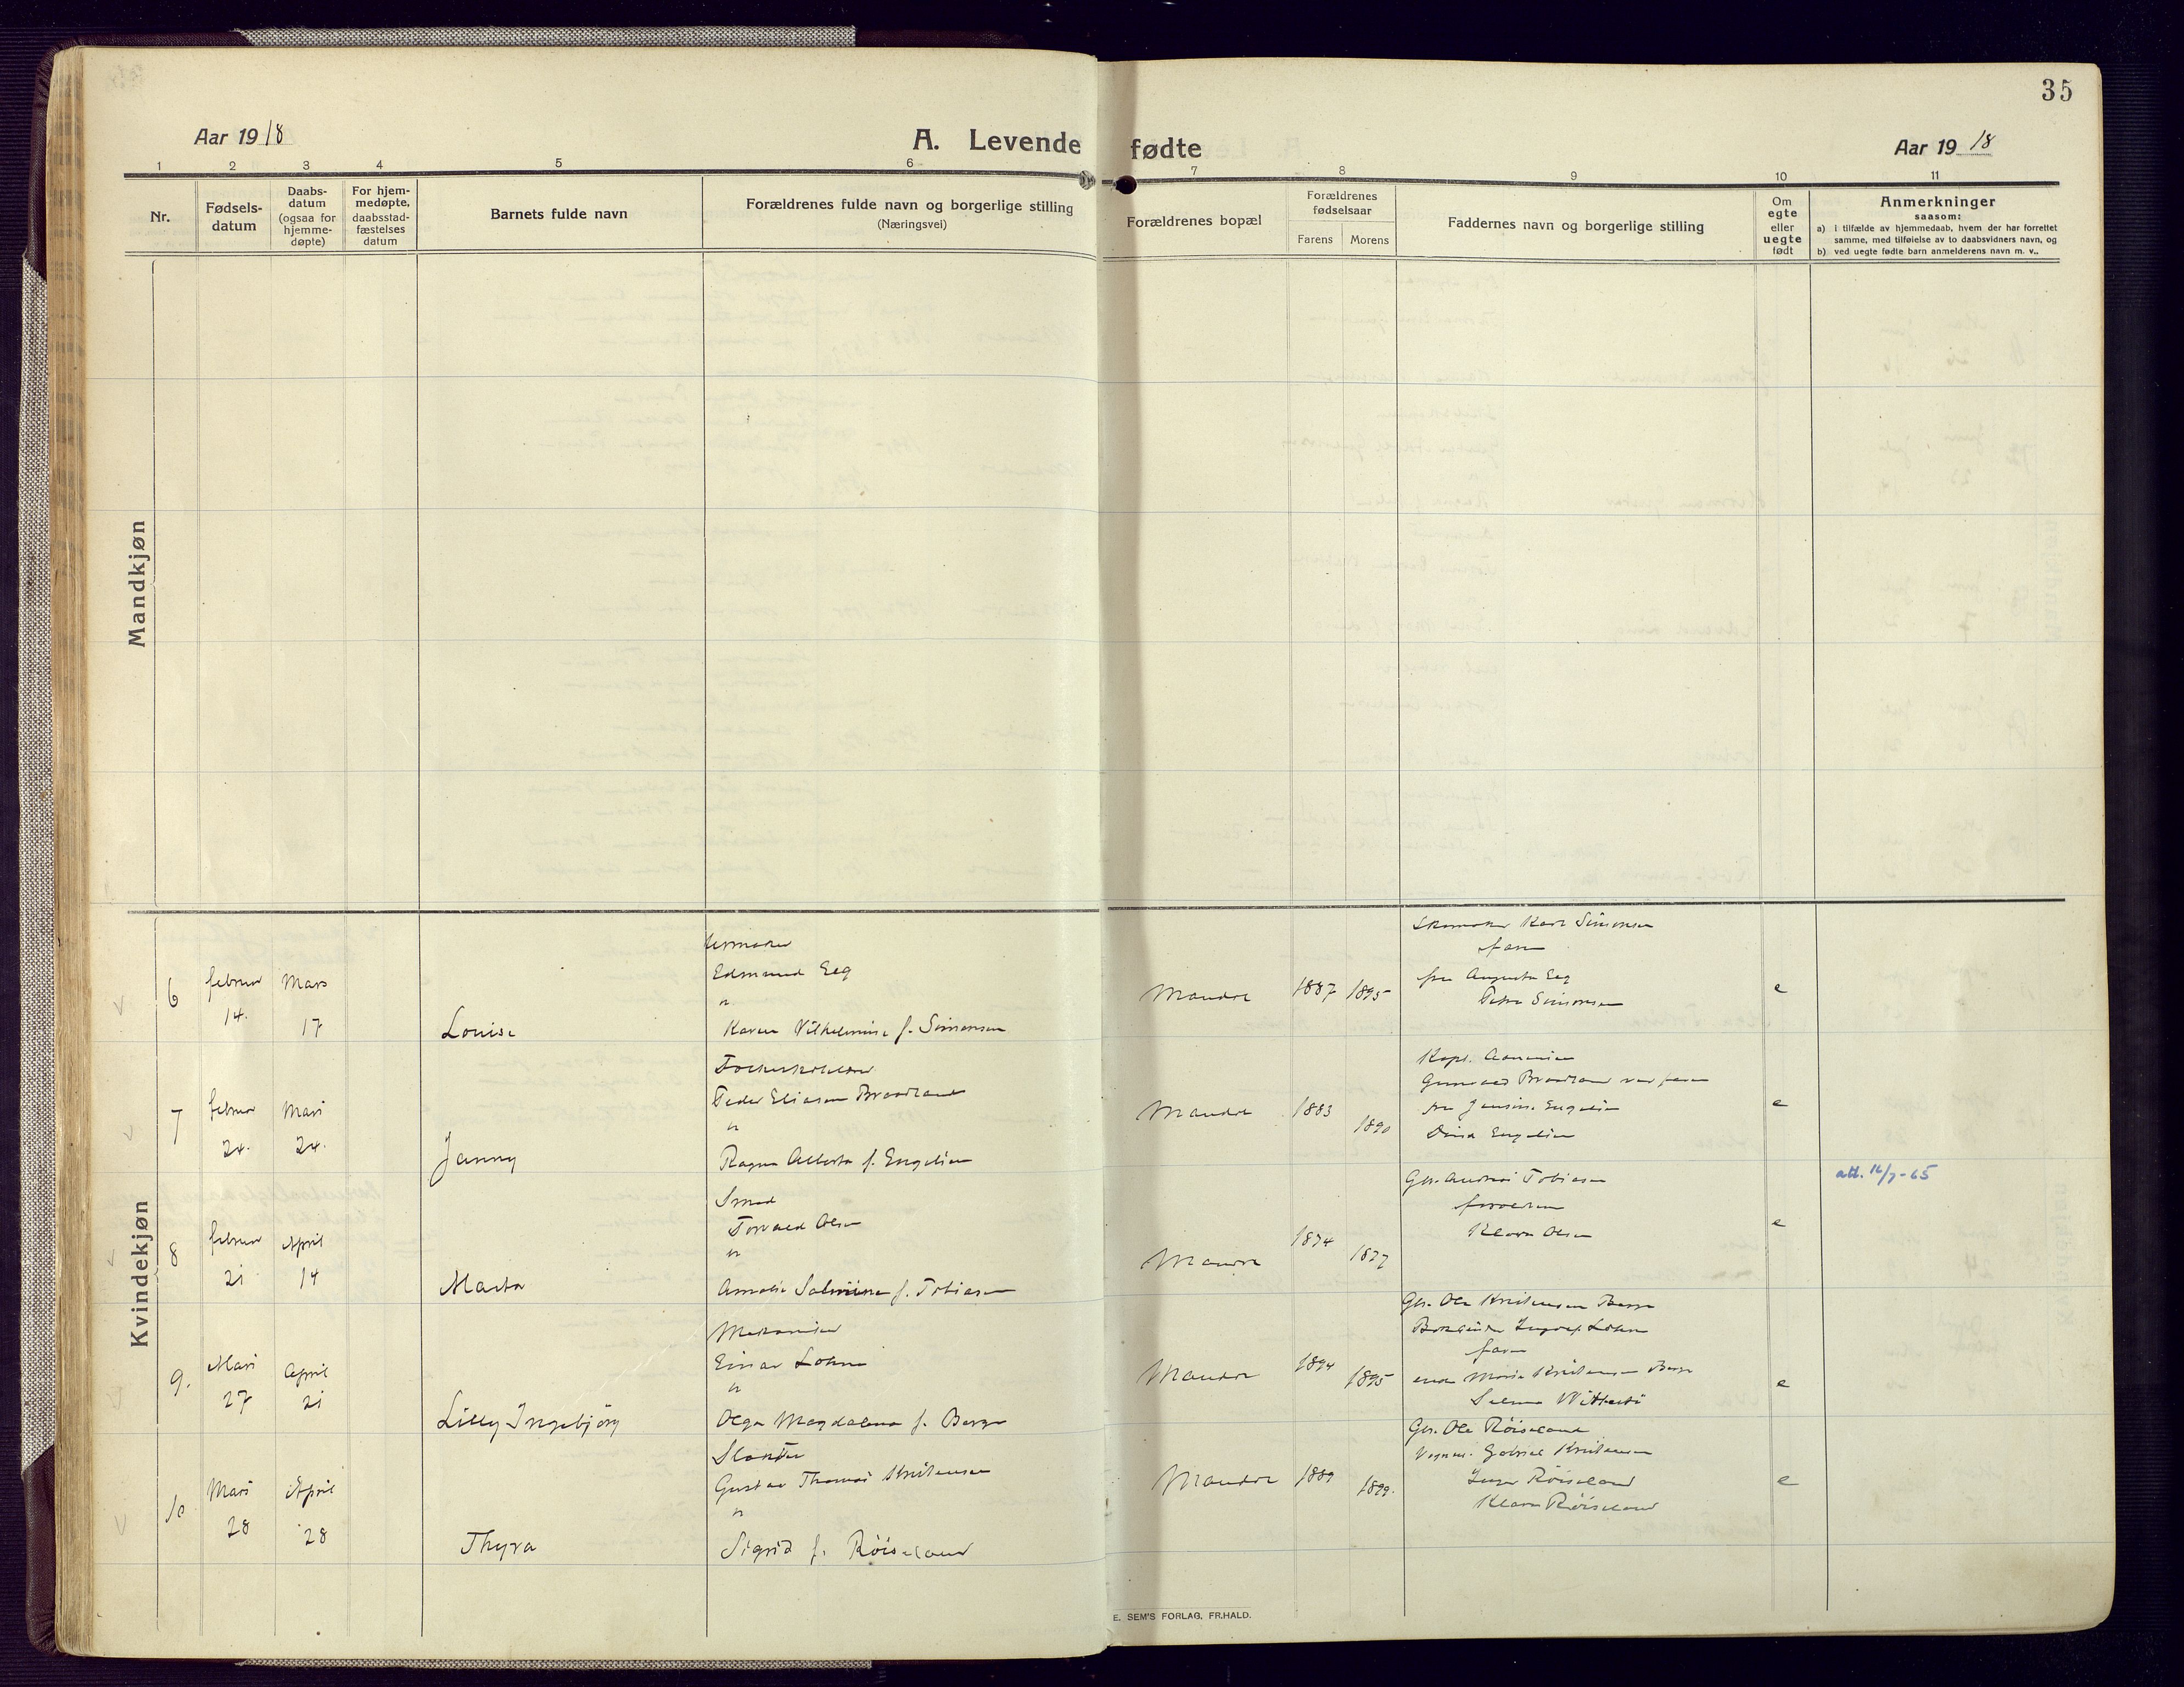 35
Aar 1918
A. Levende fødte
Aar 1918
1 2 3 4 5 6 7 8 9 10 11
Nr.
Fødsels-
datum
Daabs-
datum
(ogsaa for
hjemme-
døpte)
For hjem-
medøpte,
daabsstad-
fæstelses
datum
Barnets fulde navn
Forældrenes fulde navn og borgerlige stilling
(Næringsvei)
Forældrenes bopæl
Forældrenes
fødselsaar
Farens
Morens
Faddernes navn og borgerlige stilling
Om
egte
eller
uegte
født
Anmerkninger
saasom:
a) i tilfælde av hjemmedaab, hvem der har forrettet
samme, med tilføielse av to daabsvidners navn, og
b) ved uegte fødte barn anmelderens navn m. v..
Mandkjøn
Kvindekjøn
6
februar
14.
Mars
17
Louise
Urmaker
Edmund Eeg
Karen Vilhelmine f. Simonsen
Mandal
1887
1895
Skomaker Karl Simonsen
faren
fru Augusta Eeg
Petra Simonsen
e
7
februar
24.
Mars
24.
Janny
Peder Eliasen Brødland
Ragna Alberta f. Engelien
Mandal
1883
1890
fru Jensine Engelien
Dina Engelien
e
8
februar
21
April
14
Marta
Smed
Torvald Olsen
Amalie Salmine f. Tobiasen
Mandal
1874
1877
Gbr. Andreas Tobiasen
forældrene
Klara Olsen
e
att. 16/7-65
9.
Mars
27
April
21
Lilly Ingebjörg
Mekaniker
Einar Lohne
Olga Magdalena f. Berge
Mandal
1894
1895
Gbr. Ole Kristensen Berge
faren
Maria Kristensen Berge
Selma
e
10
Mars
28
April
28
Thyra
Slakter
Gustav Thomas Kristensen
Sigrid f. Röiseland
Mandal
1889
1899.
Gbr. Ole Röiseland
Gabriel Kristensen
Inga Röiseland
Klara Röiseland
e
E. SEM'S FORLAG, FR.HALD.